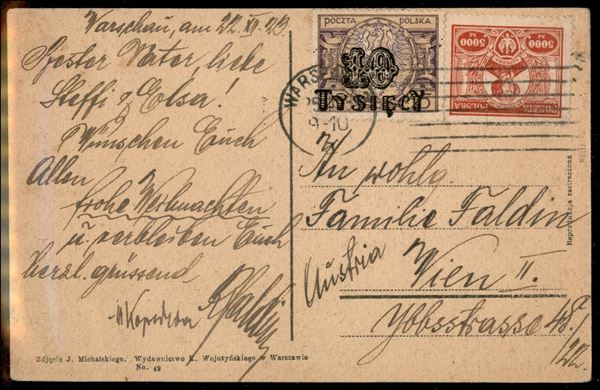 Warschau, am 22. XII. 23
Bester Vater, liebe
Steffi & Elsa!
Wünschen Euch
Allen
frohe Weihnachten
u. verbleiben Euch
herzl. grüssend
POCZTA POLSKA
10
TYSIĘCY
5000 5000
M M
WARS
9-10
An wohlg.
Familie Faldin
Austria
Wien II.
Ybbsstrasse 48/
22.
Reprodukcja zastrzeżona
Zdjęcia J. Michalskiego. Wydawnictwo K. Wojutyńskiego w Warszawie
No. 49